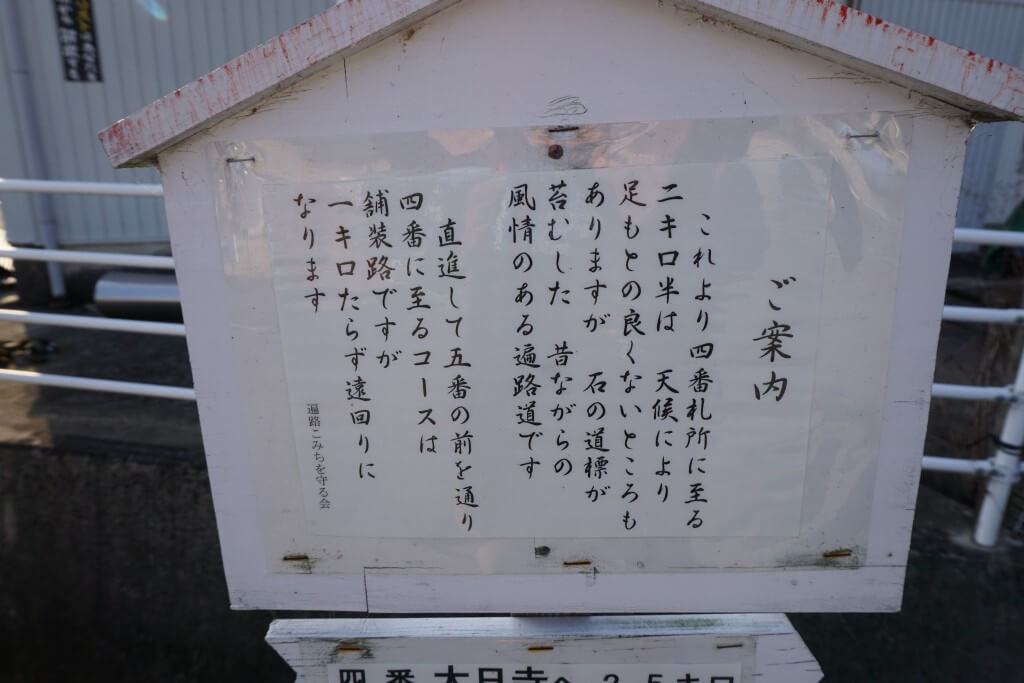 ご案内
これより四番札所に至る
二キロ半は 天候により
足もとの良くないところも
ありますが 石の道標が
苔むした 昔ながらの
風情のある遍路道です
直進して五番の前を通り
四番に至るコースは
舗装路ですが
一キロたらず遠回りに
なります
遍路こみちを守る会
四番 大日寺へ 2.5キロ